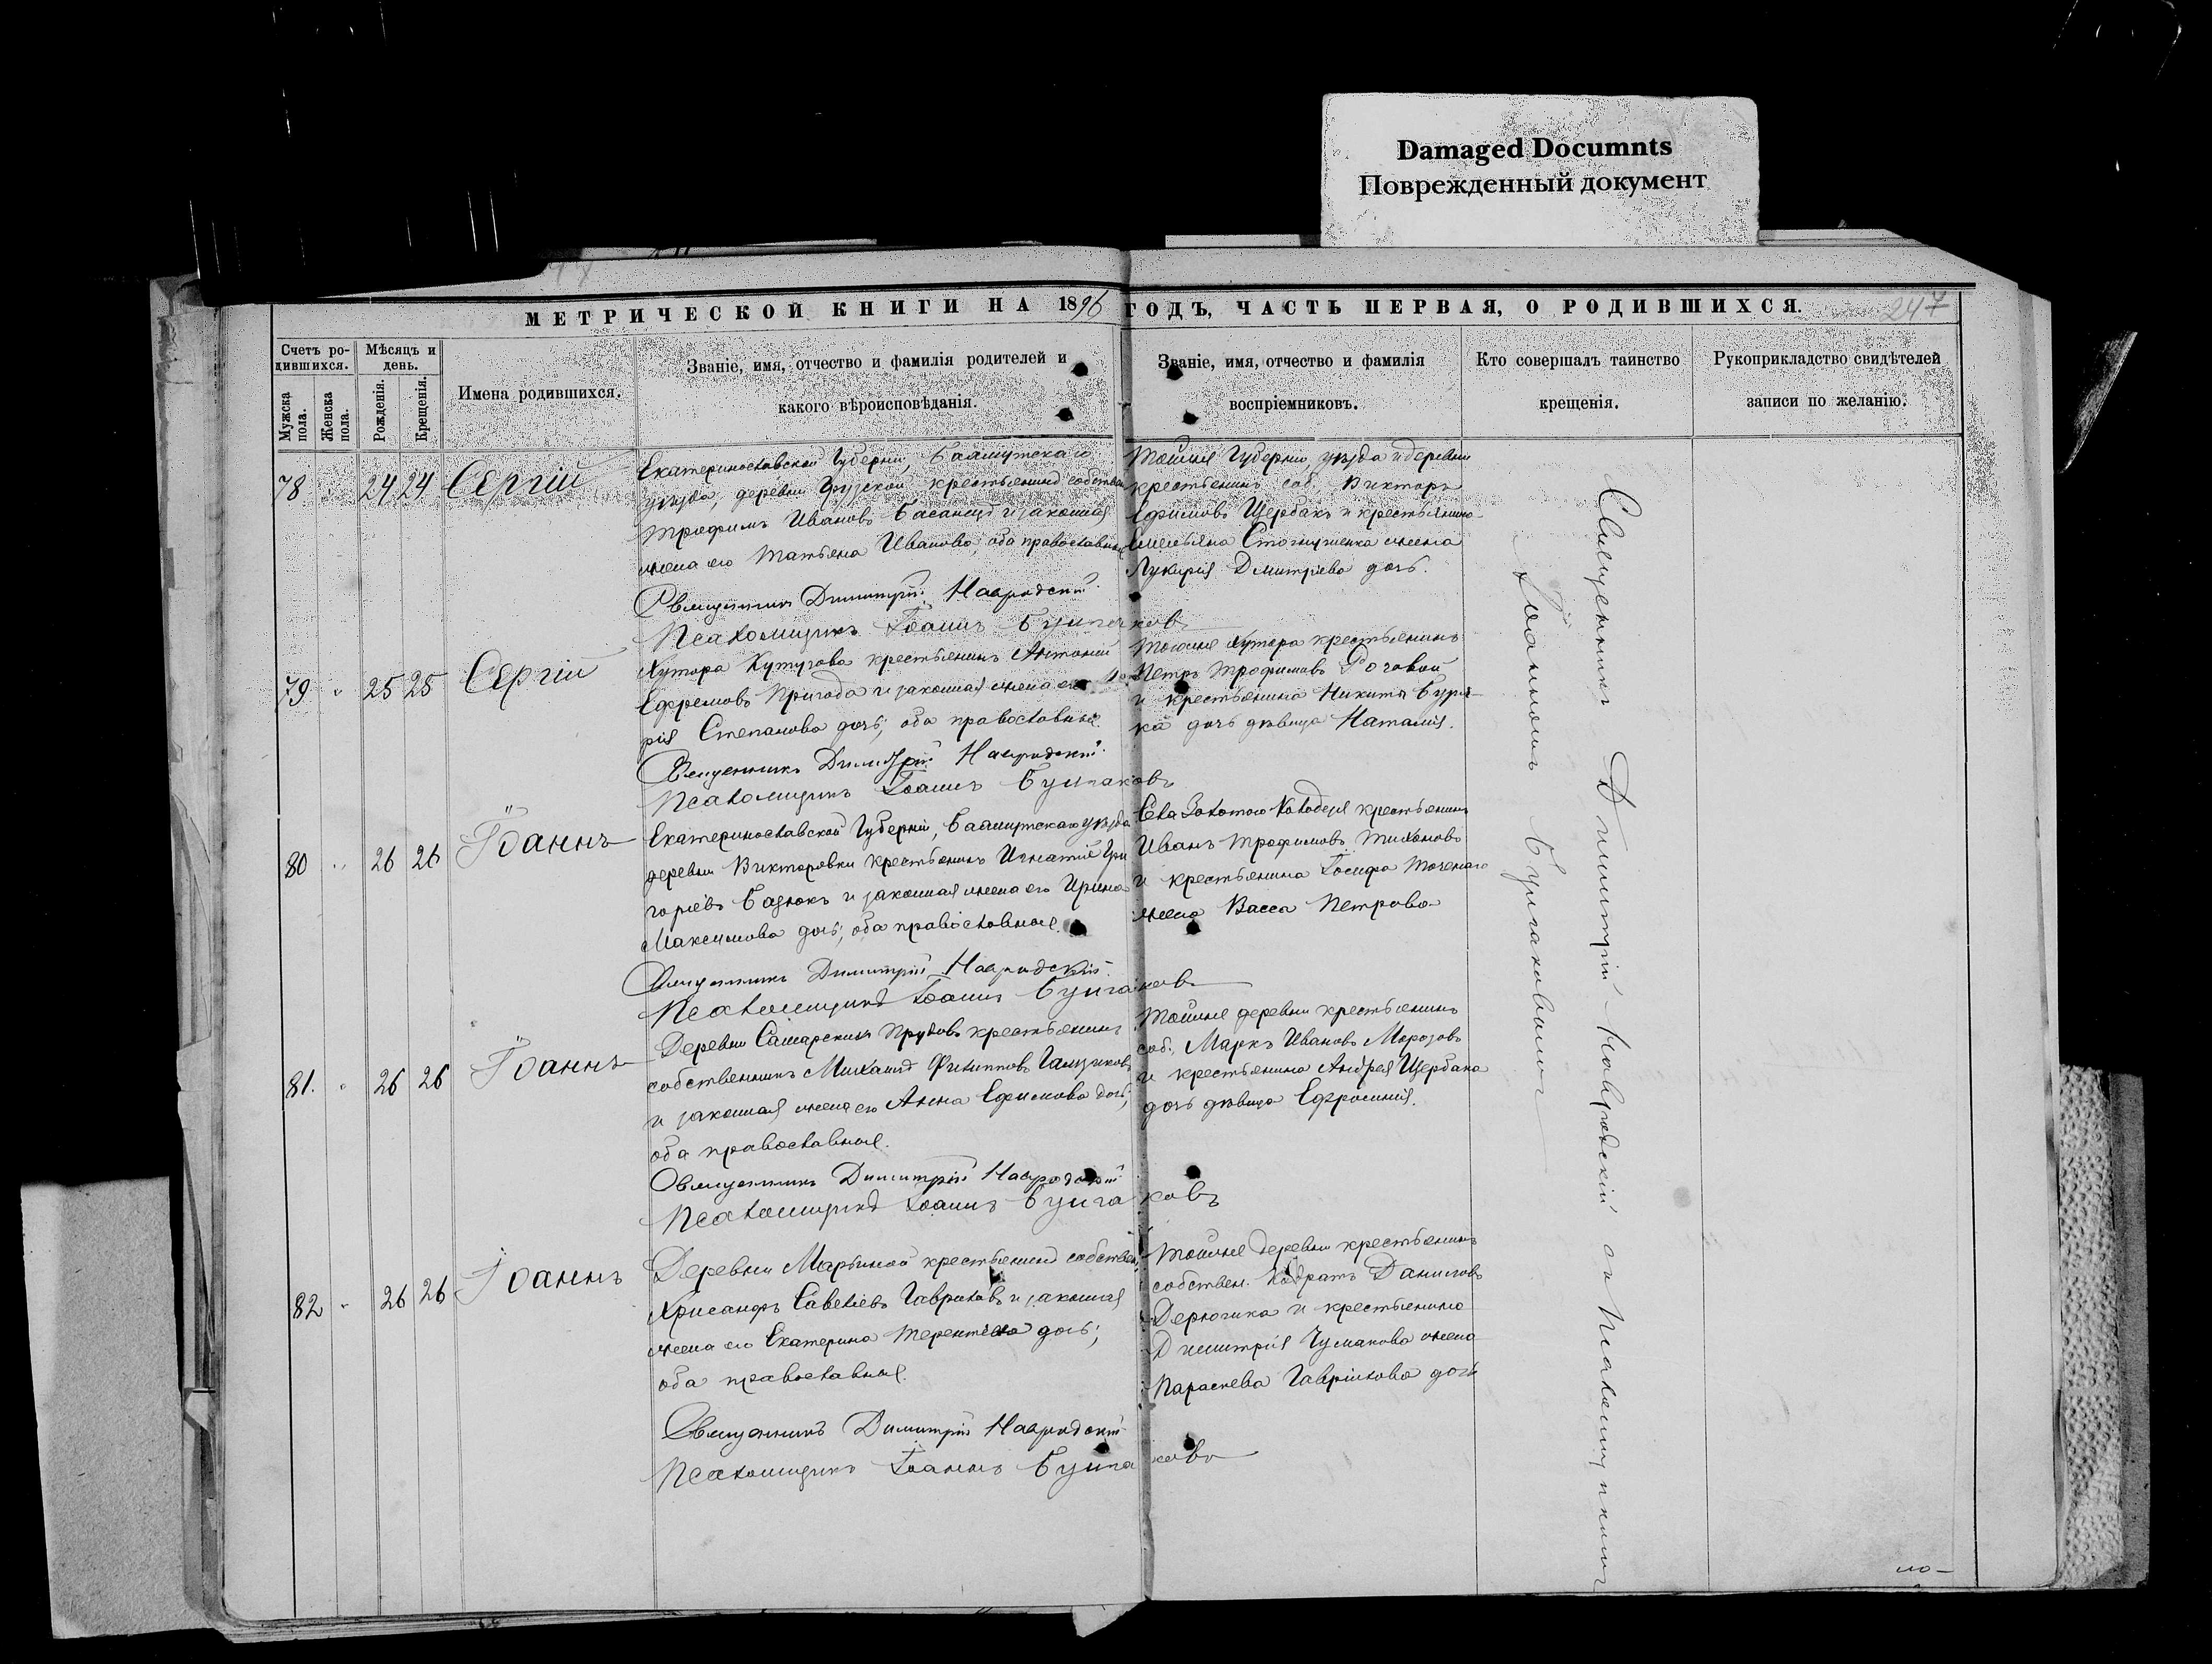 Damaged Documnts
Поврежденный документ
МЕТРИЧЕСКОЙ КНИГИ НА 1896 ГОДЪ, ЧАСТЬ ПЕРВАЯ, О РОДИВШИХСЯ. 247
Счетъ ро-
дившихся.
Мужска пола.
Женска пола.
Мѣсяцъ и
день.
Рожденія.
Крещенія.
Имена родившихся.
Званіе, имя, отчество и фамилія родителей и
какого вѣроисповѣданія.
Званіе, имя, отчество и фамилія
воспріемниковъ.
Кто совершалъ таинство
крещенія.
Рукоприкладство свидѣтелей
записи по желанію.
78 " 24 24 Сергій
Екатеринославской Губерніи, Бахмутскаго
уѣзда, деревни Грузской крестьянинъ собствен
Трофимъ Ивановъ Басанецъ и законная
жена его Татьяна Иванова, оба православные
Тойже Губерніи, уѣзда и деревни
крестьянинъ соб. Викторъ
Ефимовъ Щербакъ и крестьянина
жена
Лукерія Дмитріева дочь.
Священникъ Димитрій Навродскій
Псаломщикъ Іоаннъ Булгаковъ
79 " 25 25 Сергій
Хутора Кутузова крестьянинъ Антоній
Ефремовъ Пригода и законная жена его
рія Степанова дочь; оба православные
Тогоже хутора крестьянинъ
Петръ Трофимовъ Роговой
и крестьянина Никиты Буря-
ка дочь дѣвица Наталія.
Священникъ Димитрій Навродскій
Псаломщикъ Іоаннъ Булгаковъ
80 " 26 26 Іоаннъ
Екатеринославской Губерніи, Бахмутскаго уѣзда
деревни Викторовки крестьянинъ Игнатій Гри
горіевъ Бадюкъ и законная жена его Ирина
Максимова дочь; оба православные.
Села Золотого Колодезя крестьянинъ
Иванъ Трофимовъ Тихоновъ
и крестьянина Іосифа Точенаго
жена Васса Петрова
Священникъ Димитрій Навродскій
Псаломщикъ Іоаннъ Булгаковъ
81. " 26 26 Іоаннъ
Деревни Самарскихъ Прудовъ крестьянинъ
собственникъ Михаилъ Филипповъ
и законная жена его Анна Ефимова дочь;
оба православные.
Тойже деревни крестьянинъ
соб. Маркъ Ивановъ Морозовъ
и крестьянина Андрея Щербака
дочь дѣвица Ефросинія.
Священникъ Димитрій Навродскій
Псаломщикъ Іоаннъ Булгаковъ
82 " 26 26 Іоаннъ
Деревни Марьиной крестьянинъ собствен,
Хрисанфъ Савеліевъ Гавриловъ и законная
жена его Екатерина Терентіева дочь;
оба православные.
Тойже деревни крестьянинъ
собствен. Кодратъ Даниловъ
Дерюгина и крестьянина
Димитрія Чумакова жена
Параскева Гаврилова дочь
Священникъ Димитрій Навродскій
Псаломщикъ Іоаннъ Булгаковъ
Священникъ Димитрій Навродскій съ Псаломщикомъ
Іоанномъ Булгаковымъ